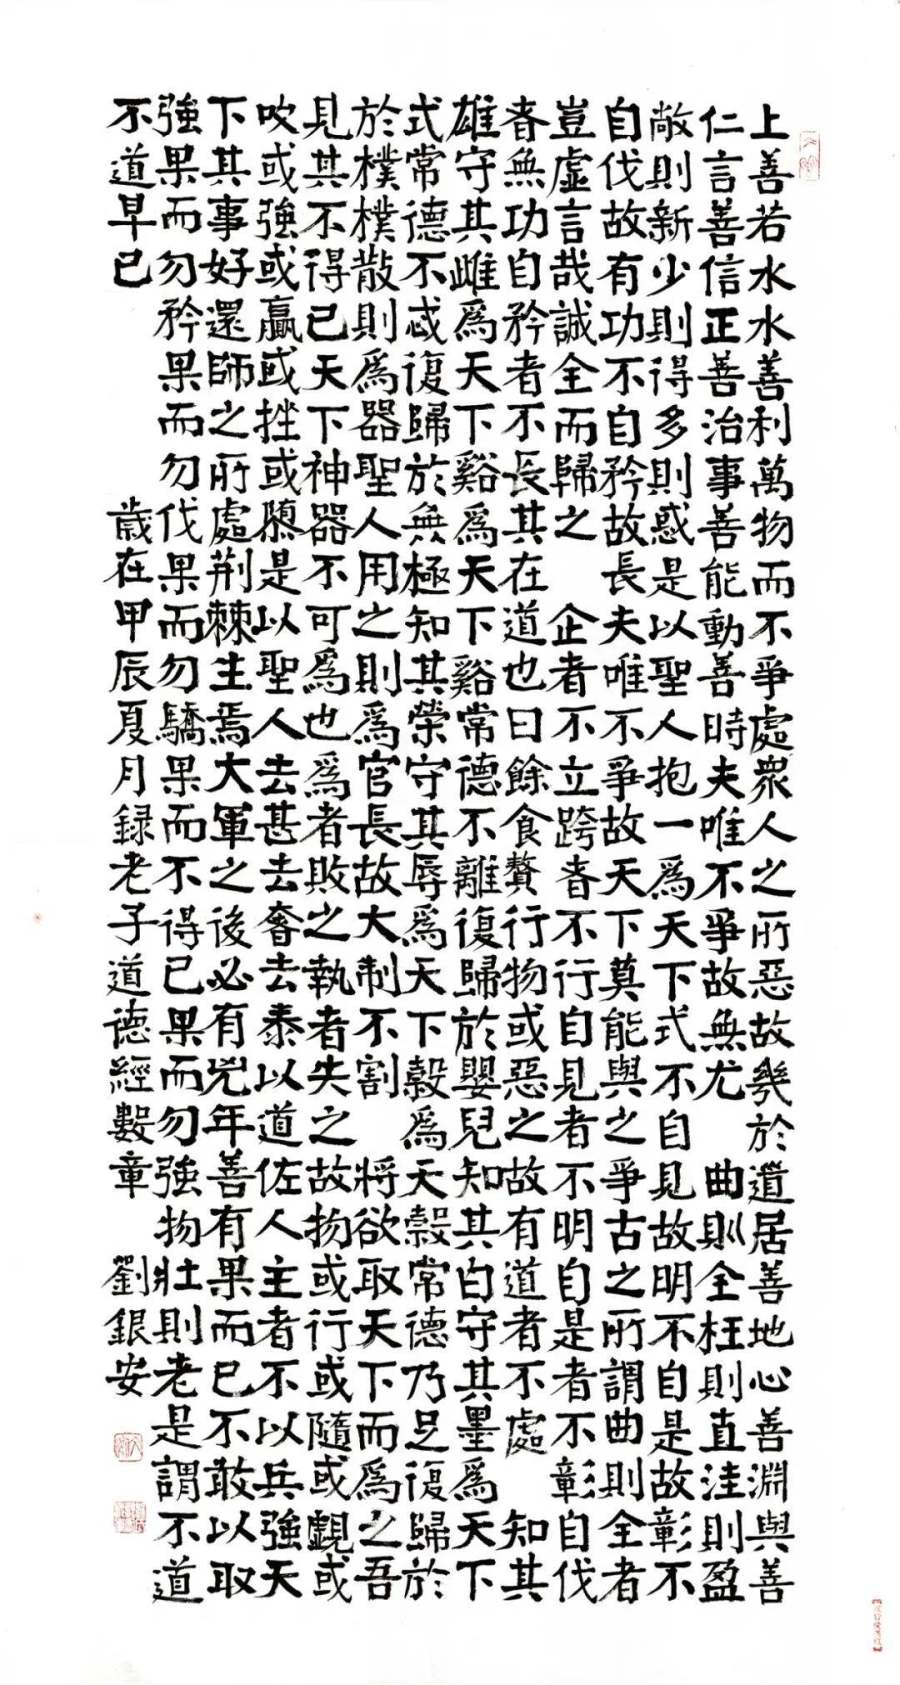 上善若水水善利萬物而不爭處衆人之所惡故幾於道居善地心善淵與善
仁言善信正善治事善能動善時夫唯不爭故無尤 曲則全枉則直洼則盈
敝則新少則得多則惑是以聖人抱一爲天下式不自見故明不自是故彰不
自伐故有功不自矜故長夫唯不爭故天下莫能與之爭古之所謂曲則全者
豈虛言哉誠全而歸之 企者不立跨者不行自見者不明自是者不彰自伐
者無功自矜者不長其在道也曰餘食贅行物或惡之故有道者不處 知其
雄守其雌爲天下谿爲天下谿常德不離復歸於嬰兒知其白守其墨爲天下
式常德不忒復歸於無極知其榮守其辱爲天下穀爲天穀常德乃足復歸於
於樸樸散則爲器聖人用之則爲官長故大制不割 將欲取天下而爲之吾
見其不得已天下神器不可爲也爲者敗之執者失之故物或行或隨或覤或
吹或強或羸或挫或隳是以聖人去甚去奢去泰以道佐人主者不以兵強天
下其事好還師之所處荆棘生焉大軍之後必有兇年善有果而已不敢以取
強果而勿矜果而勿伐果而勿驕果而不得已果而勿強物壯則老是謂不道
不道早已 歲在甲辰夏月録老子道德經數章 劉銀安